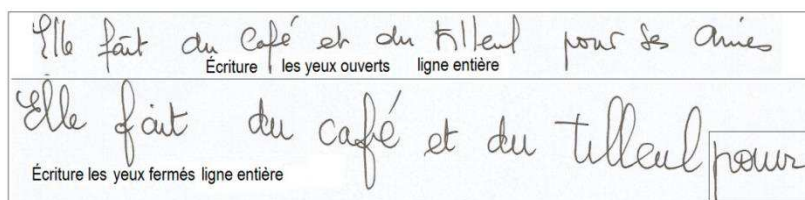 Elle fait du café et du tilleul pour ses amies
Écriture les yeux ouverts ligne entière
Elle fait du café et du tilleul pour
Écriture les yeux fermés ligne entière